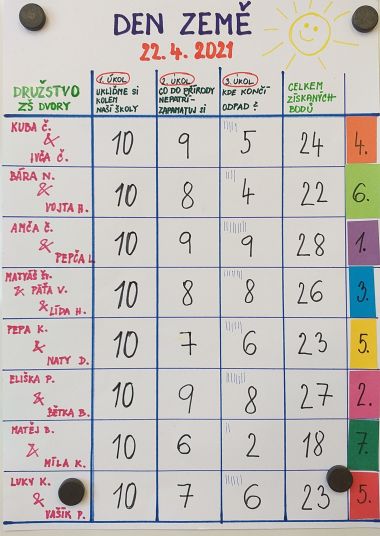 DEN ZEMĚ
22. 4. 2021
DRUŽSTVO
ZŠ DVORY
1. ÚKOL
UKLIĎME SI
KOLEM
NAŠÍ ŠKOLY
2. ÚKOL
CO DO PŘÍRODY
NEPATŘÍ -
ZAPAMATUJ SI
3. ÚKOL
KDE KONČÍ
ODPAD?
CELKEM
ZÍSKANÝCH
BODŮ
KUBA Č.
&
IVČA Č.
10 9 5 24 4.
BÁRA N.
&
VOJTA H.
10 8 4 22 6.
AMČA Č.
&
PEPČA L.
10 9 9 28 1.
MATYÁŠ Š.
& PÁŤA V.
& LÍDA H.
10 8 8 26 3.
PEPA K.
&
NATY D.
10 7 6 23 5.
ELIŠKA P.
&
BĚTKA B.
10 9 8 27 2.
MATĚJ B.
&
MÍLA K.
10 6 2 18 7.
LUKY K.
&
VAŠÍK P.
10 7 6 23 5.